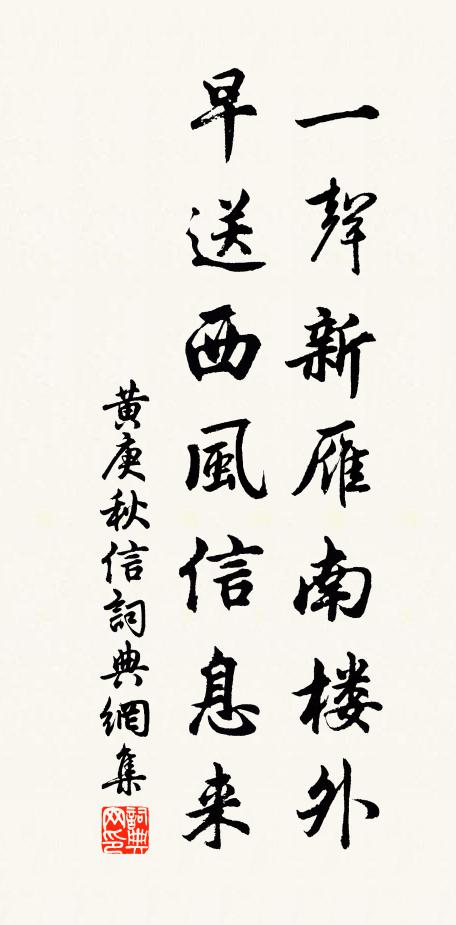 一聲新雁南楼外
早送西風信息来
黄庚秋信詞典網集
詞典网印